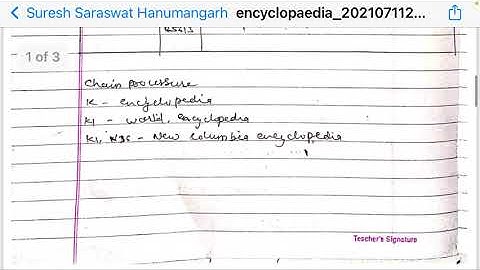 Suresh Saraswat Hanumangarh encyclopaedia_202107112...
1 of 3
Chain procesure
K - encyclopedia
K1 - world, encyclopedia
K1, N35 - New columbia encyclopedia
Teacher's Signature